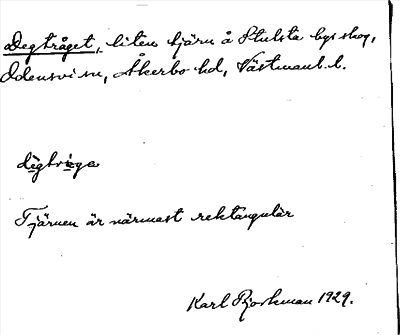 Degtråget, liten tjärn å Stulsta bys skog,
Odensvi sn, Åkerbo hd, Västmanl. l.
Tjärnen är närmast rektangulär
Karl Bjorkman 1929.